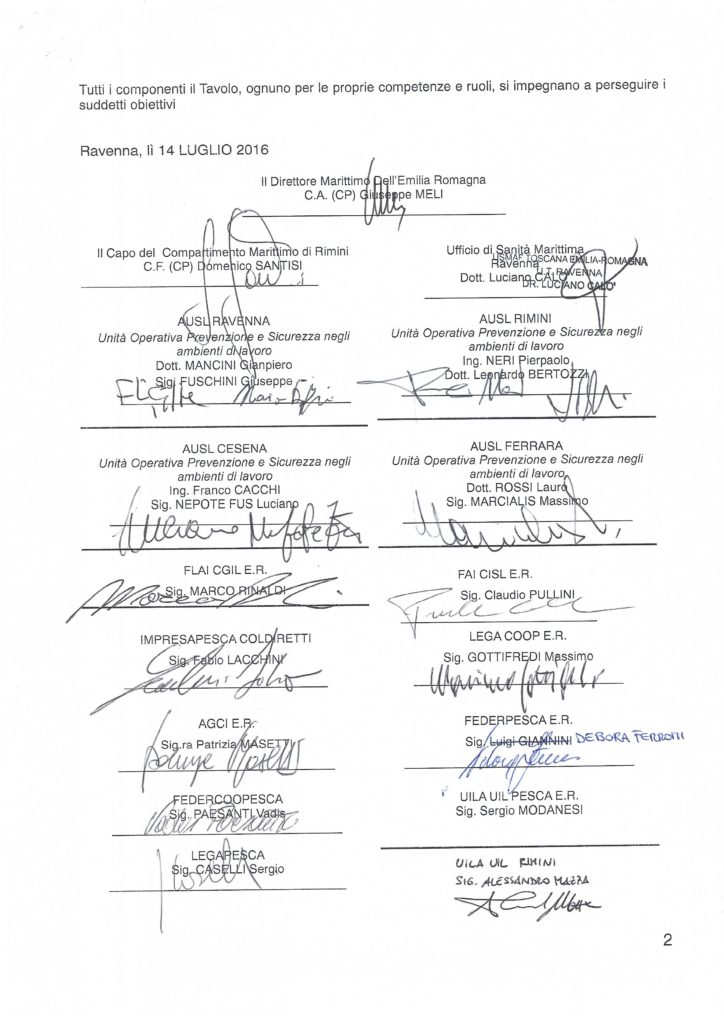 Tutti i componenti il Tavolo, ognuno per le proprie competenze e ruoli, si impegnano a perseguire i
suddetti obiettivi
Ravenna, lì 14 LUGLIO 2016
Il Direttore Marittimo Dell'Emilia Romagna
C.A. (CP) Giuseppe MELI
Il Capo del Compartimento Marittimo di Rimini
C.F. (CP) Domenico SANTISI
Ufficio di Sanità Marittima
Ravenna
Dott. Luciano CALO'
USMAF TOSCANA EMILIA-ROMAGNA
U.T. RAVENNA
DR. LUCIANO CALO'
AUSL RAVENNA
Unità Operativa Prevenzione e Sicurezza negli
ambienti di lavoro
Dott. MANCINI Gianpiero
Sig. FUSCHINI Giuseppe
AUSL RIMINI
Unità Operativa Prevenzione e Sicurezza negli
ambienti di lavoro
Ing. NERI Pierpaolo
Dott. Leonardo BERTOZZI
AUSL CESENA
Unità Operativa Prevenzione e Sicurezza negli
ambienti di lavoro
Ing. Franco CACCHI
Sig. NEPOTE FUS Luciano
AUSL FERRARA
Unità Operativa Prevenzione e Sicurezza negli
ambienti di lavoro
Dott. ROSSI Lauro
Sig. MARCIALIS Massimo
FLAI CGIL E.R.
Sig. MARCO RINALDI
FAI CISL E.R.
Sig. Claudio PULLINI
IMPRESAPESCA COLDIRETTI
Sig. Fabio LACCHINI
LEGA COOP E.R.
Sig. GOTTIFREDI Massimo
AGCI E.R.
Sig.ra Patrizia MASETTI
FEDERPESCA E.R.
Sig. Luigi GIANNINI DEBORA FERRONI
FEDERCOOPESCA
Sig. PAESANTI Vadis
UILA UIL PESCA E.R.
Sig. Sergio MODANESI
LEGAPESCA
Sig. CASELLI Sergio
UILA UIL RIMINI
SIG. ALESSANDRO MAZZA
2